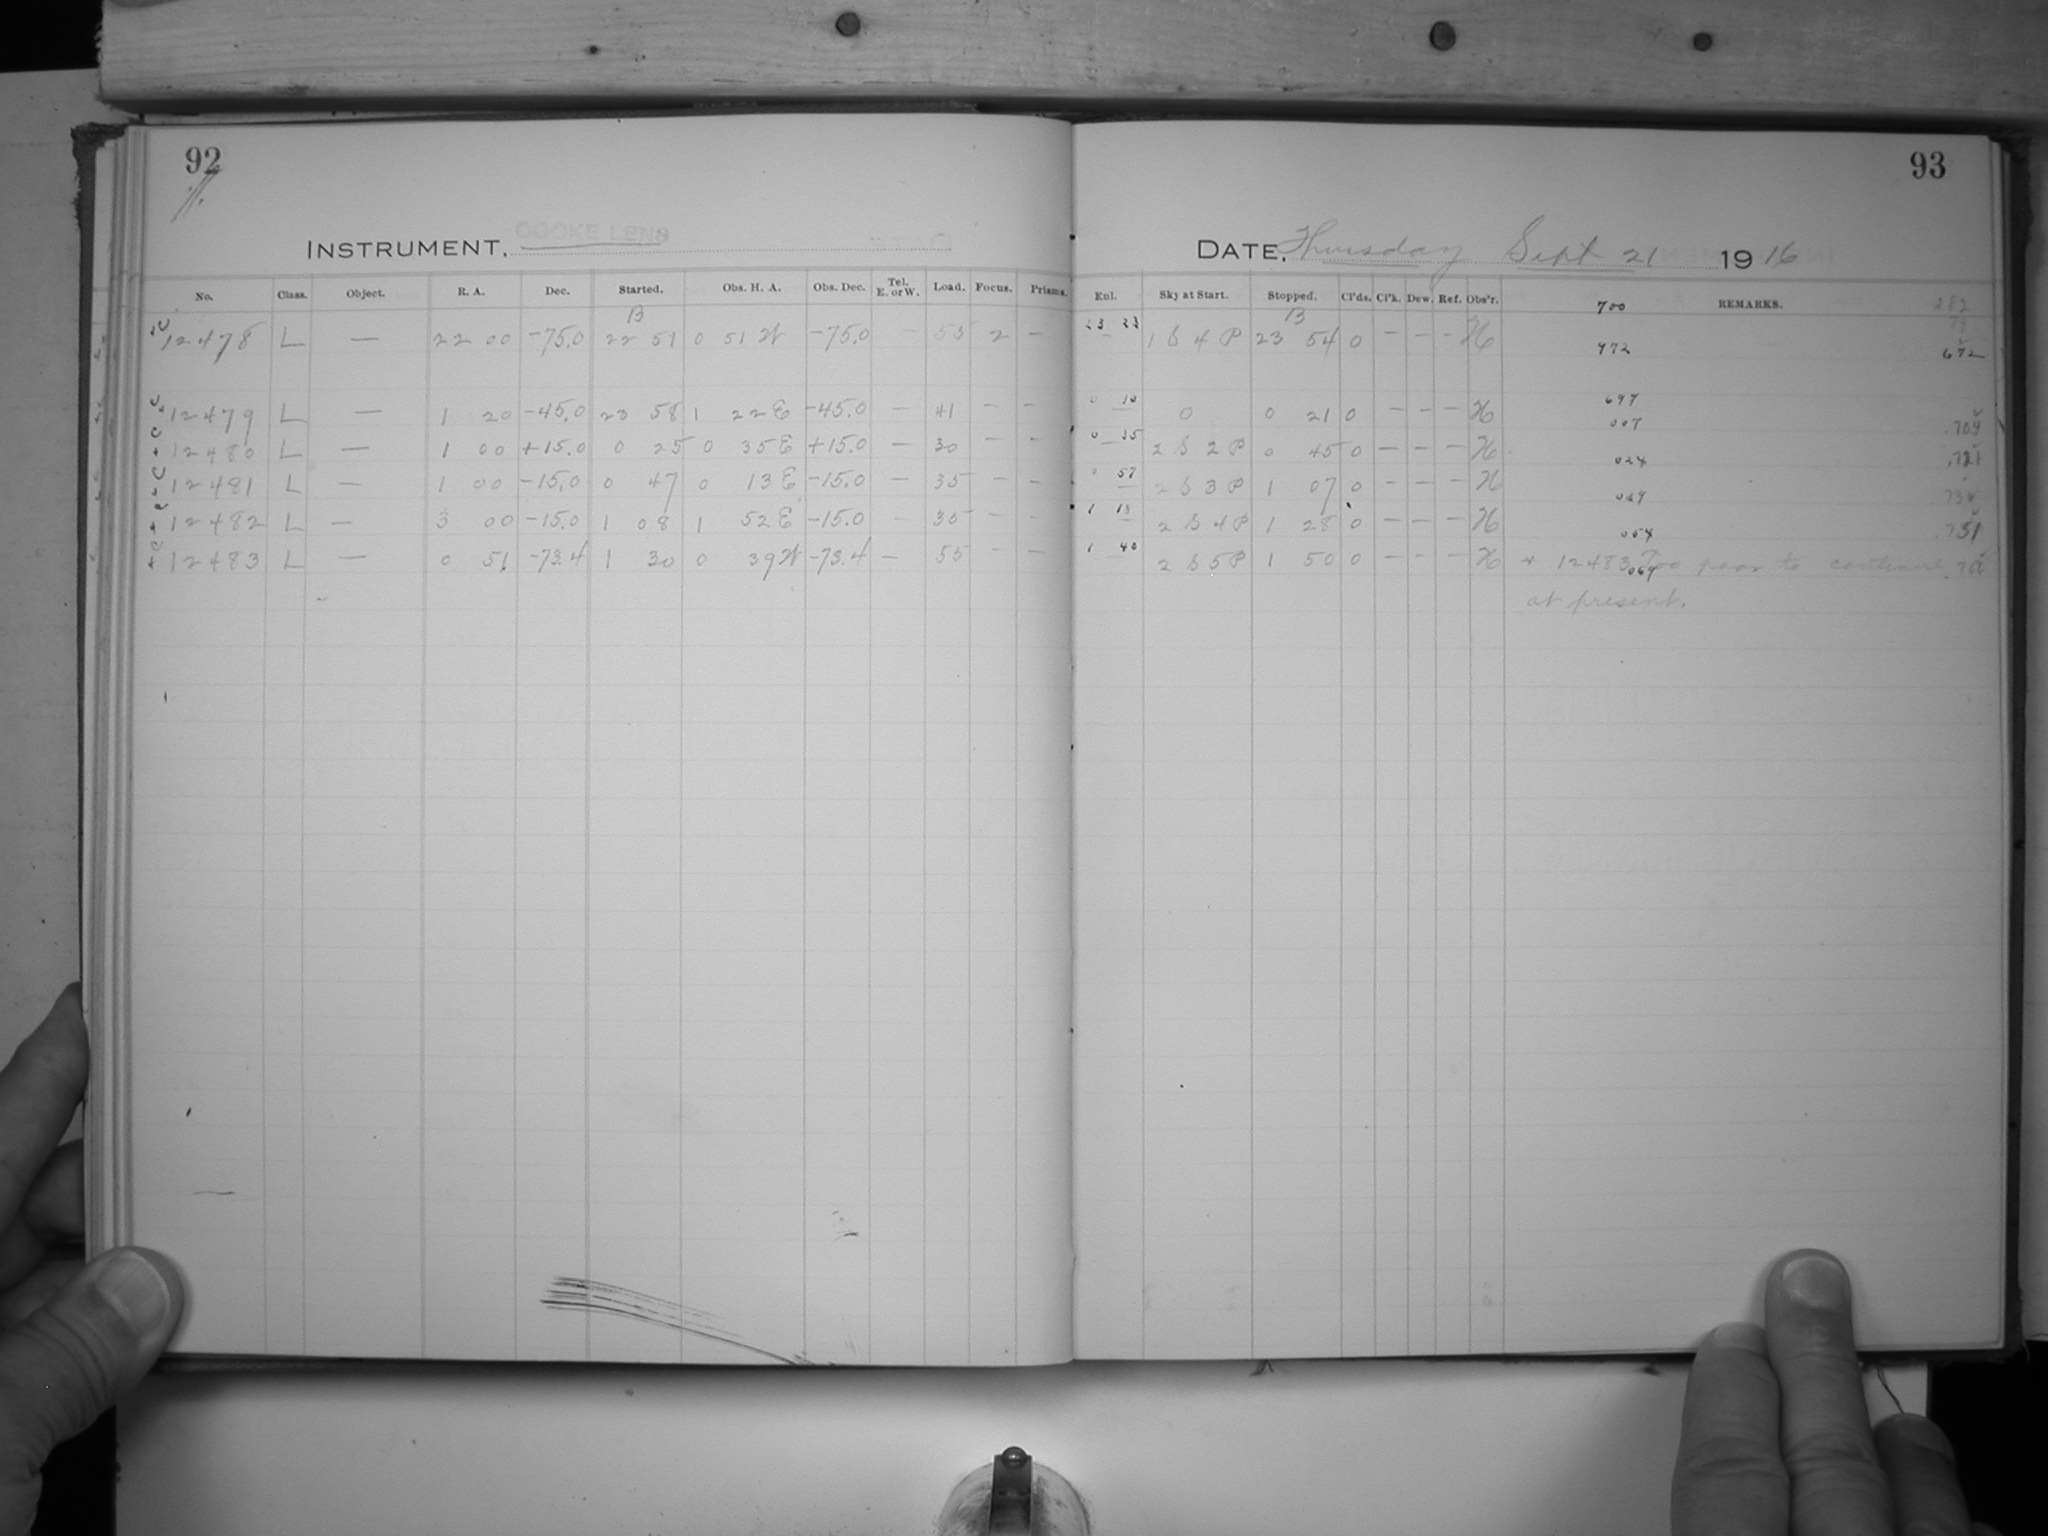 92
93
COOKE LENS
INSTRUMENT,
DATE, Thursday Sept 21 1916
No. Class. Object. R. A. Dec. Started. Obs. H. A. Obs. Dec. Tel. E. or W. Load. Focus. Prisms. Enl. Sky at Start. Stopped. Cl'ds. Cl'k. Dew. Ref. Obs'r. 700 REMARKS. 282
B B
12478 L — 22 00 -75.0 22 51 0 51 W -75.0 — 55 2 — 23 23 1 S 4 P 23 54 0 — — — H 972 672
12479 L — 1 20 -45.0 23 58 1 22 E -45.0 — 41 — — 0 10 0 0 21 0 — — — H 697 007
12480 L — 1 00 +15.0 0 25 0 35 E +15.0 — 30 — — 0 35 2 S 2 P 0 45 0 — — — H 024
12481 L — 1 00 -15.0 0 47 0 13 E -15.0 — 35 — — 0 57 2 S 3 P 1 07 0 — — — H 029
12482 L — 3 00 -15.0 1 08 1 52 E -15.0 — 35 — — 1 18 2 S 4 P 1 28 0 — — — H 054 .751
12483 L — 0 51 -73.4 1 30 0 39 W -73.4 — 55 — — 1 40 2 S 5 P 1 50 0 — — — H * 12483 Too poor to continue 069
at present.